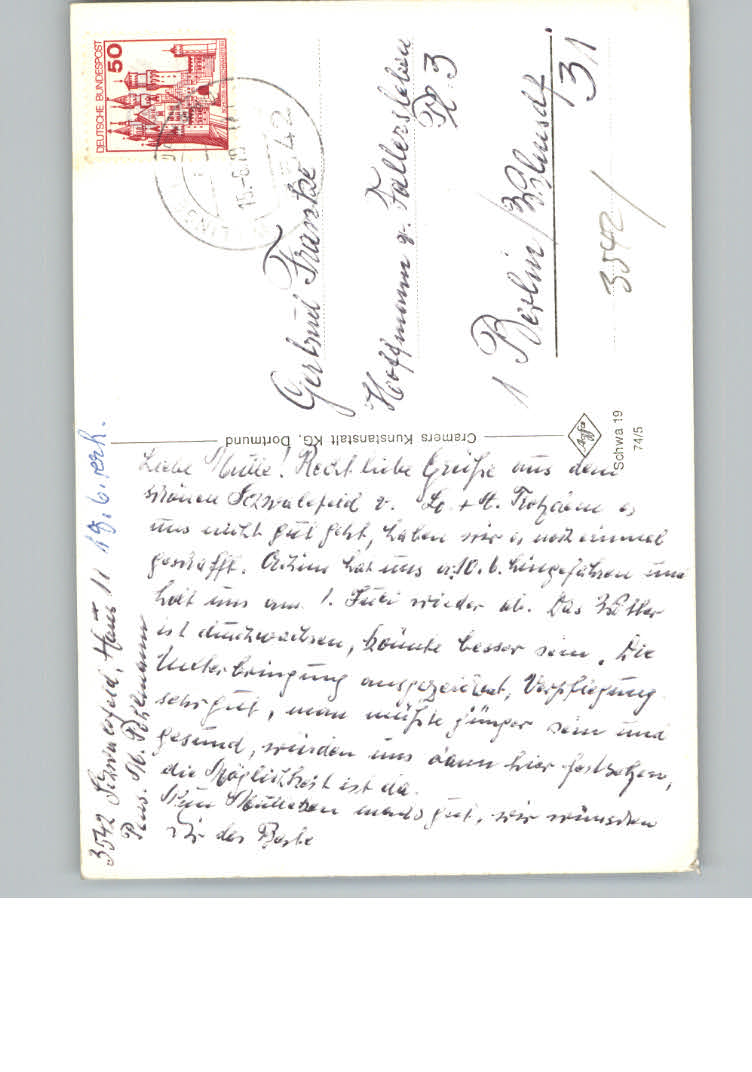 DEUTSCHE BUNDESPOST
50
15.-6.
3542
Gertrud Frantze
Hoffmann v. Fallersleben
Pl. 3
1 Berlin/Wilmsdf.
31
3542/
Cramers Kunstanstalt KG, Dortmund
Agfa
Schwa 19
74/5
3542 Schwalefeld, Haus 11
Pens.
15.6. verh.
Liebe Mulle! Recht liebe Grüße aus dem
schönen Schwalefeld v. Trotzdem es
uns nicht gut geht, haben wir es noch einmal
geschafft. Achim hat uns a. 10.6. hingefahren und
holt uns am 1. Juli wieder ab. Das Wetter
ist durchwachsen, könnte besser sein. Die
Unterbringung ausgezeichnet, Verpflegung
sehr gut, man müßte jünger sein und
gesund, würden uns dann hier festsetzen,
die Möglichkeit ist da.
Nun Mullechen machs gut, wir wünschen
Dir das Beste